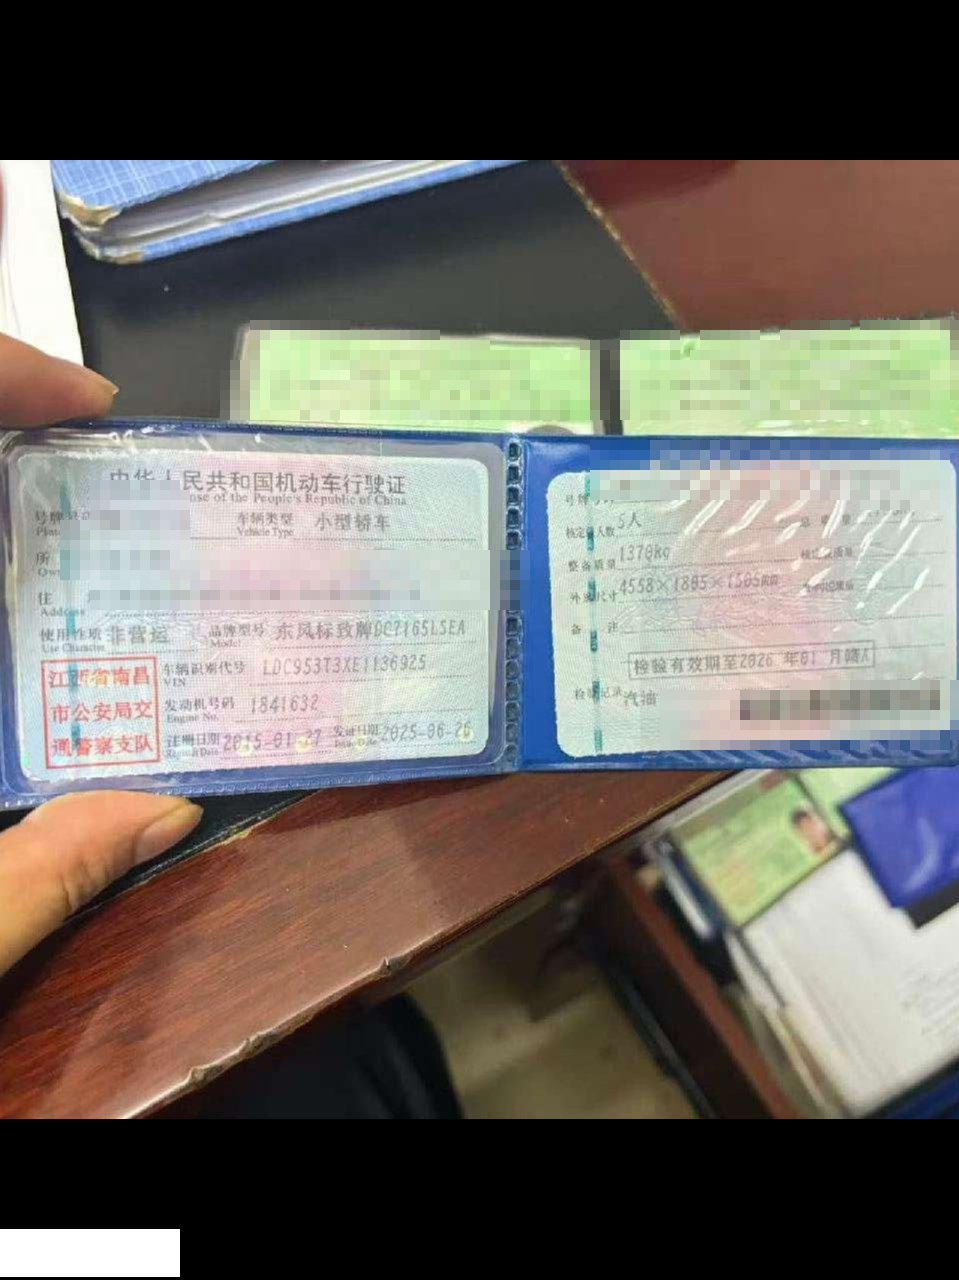 中华人民共和国机动车行驶证
nse of the People's Republic of China
号牌号
车辆类型 小型轿车
Vehicle Type
所
住
Address
使用性质 非营运 品牌型号 东风标致牌DC7165LSEA
Use Character Model
车辆识别代号 LDC953T3XE1136925
VIN
发动机号码 1841632
Engine No.
注册日期 2015-01-27 发证日期 2025-06-26
Register Date Issue Date
江西省南昌
市公安局交
通警察支队
号牌
核定载人数 5人 总质量
整备质量 1370kg 核定载质量
外廓尺寸 4558×1805×1505mm
备注
检验有效期至2026年01月赣A
检验记录 汽油